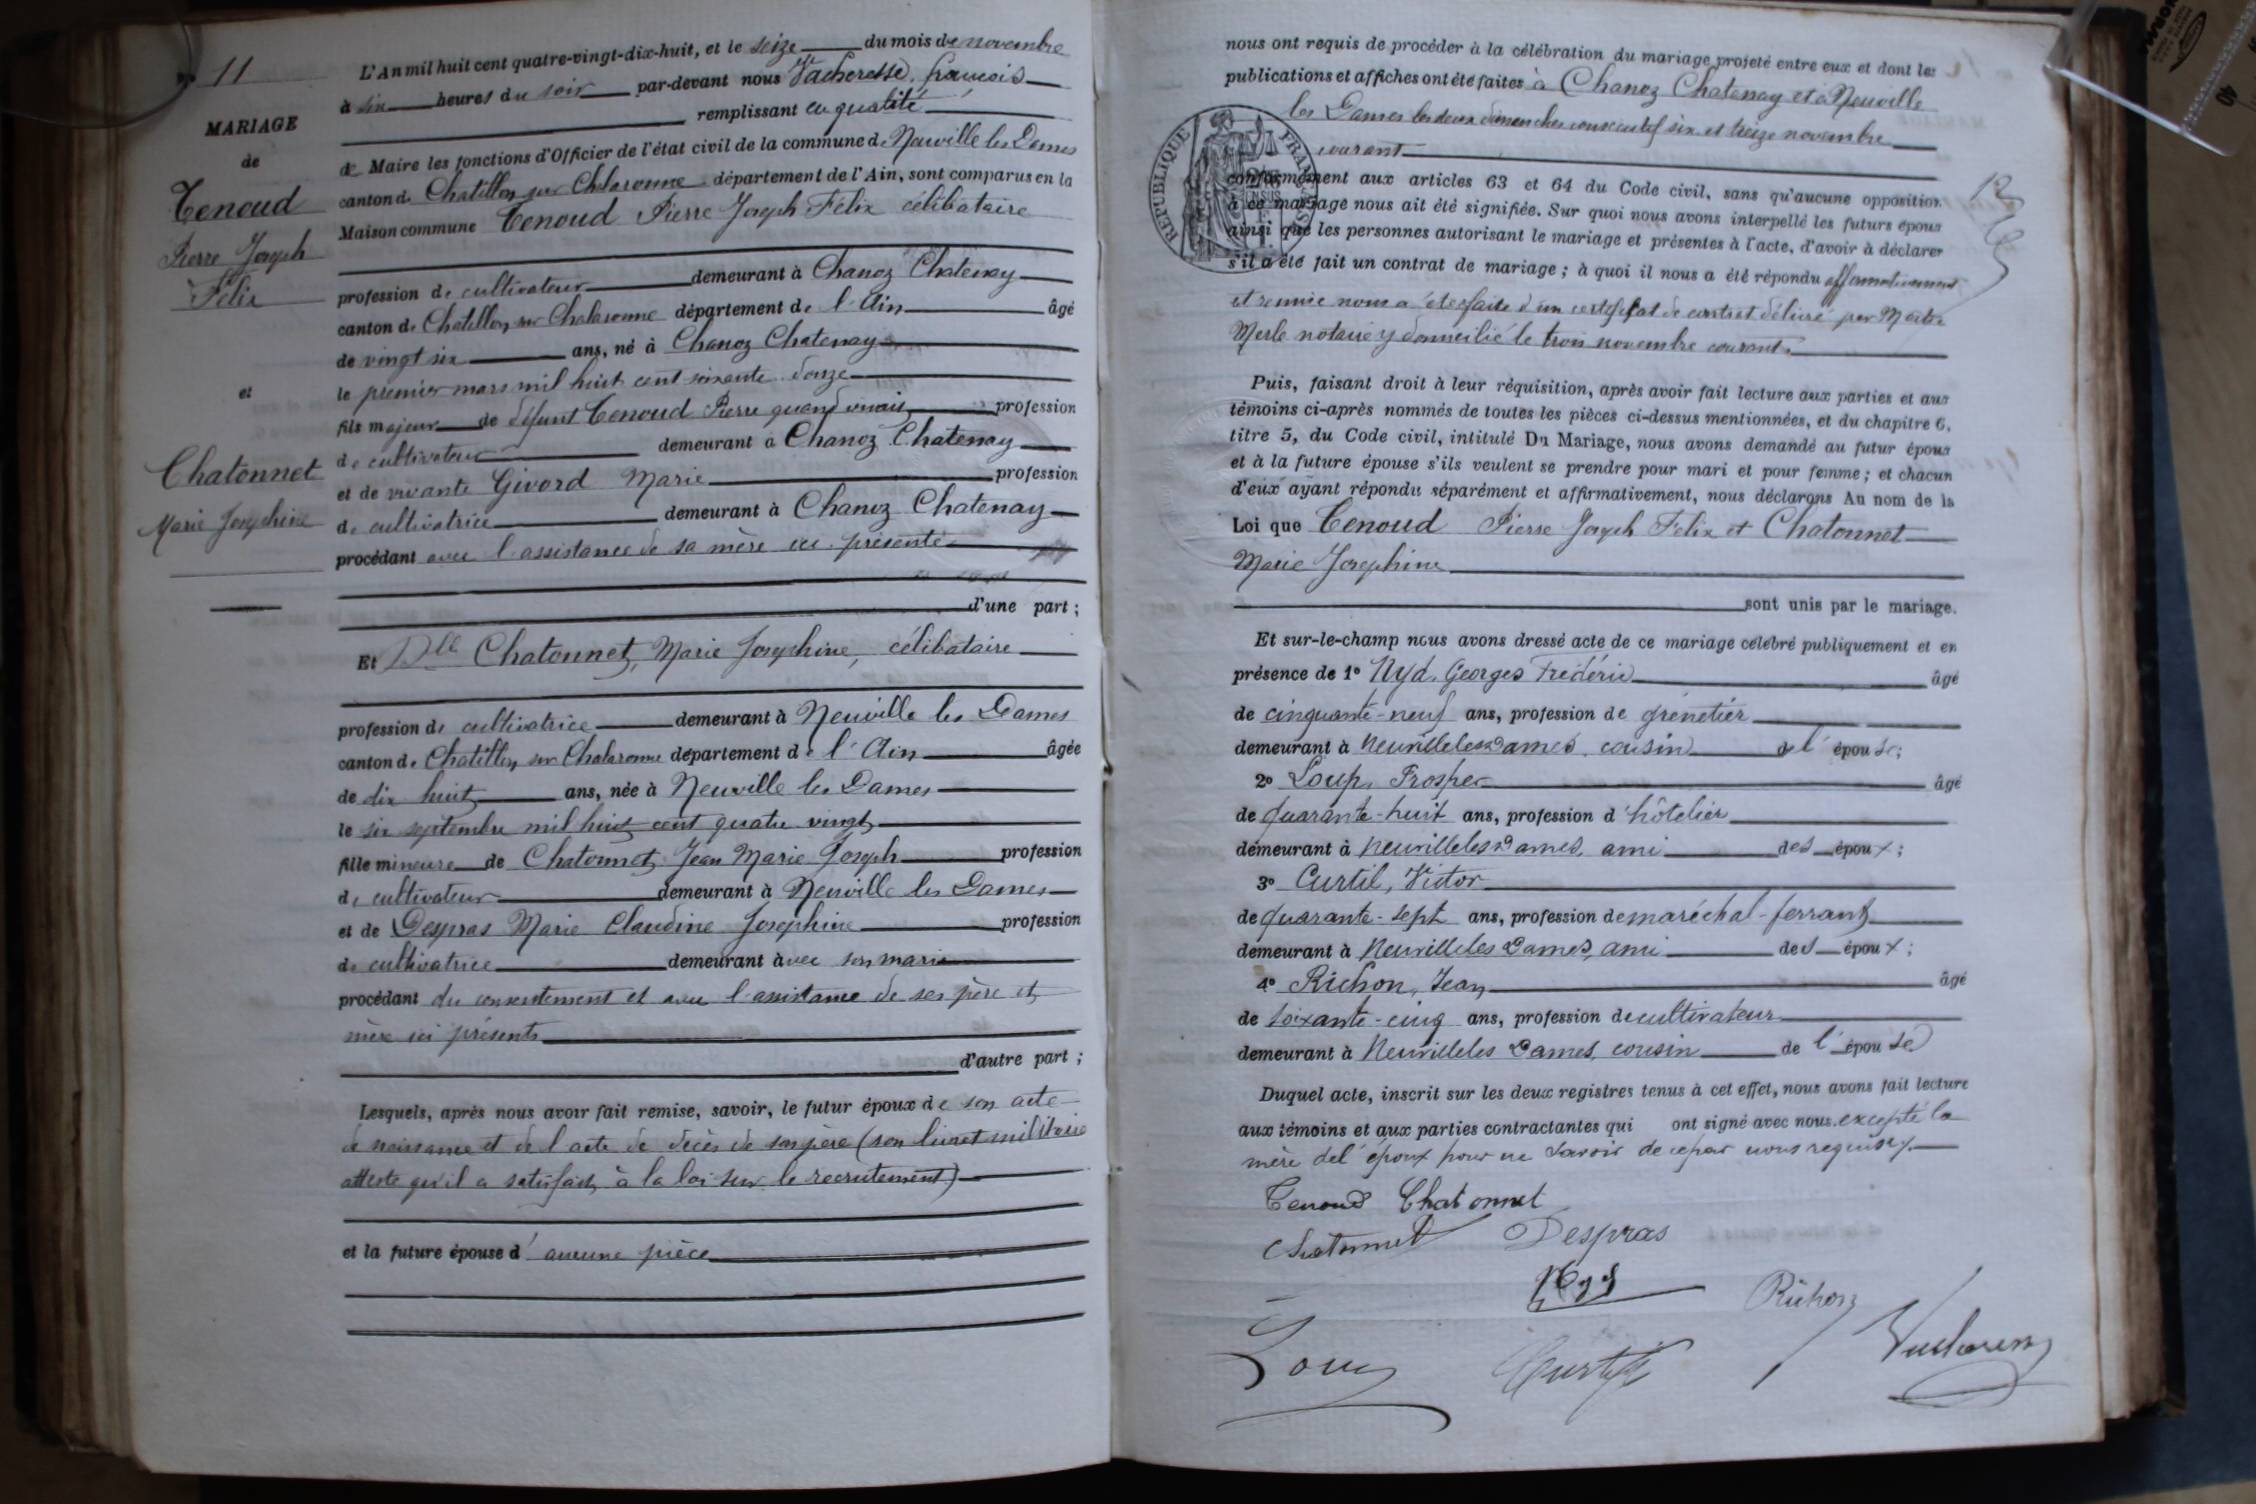 11
MARIAGE
de
Tenoud
Pierre Joseph
Félix
et
Chatonnet
Marie Josephine
L'An mil huit cent quatre-vingt-dix-huit, et le seize du mois de novembre
à six heures du soir par-devant nous Vacheresse, françois
remplissant en qualité
de Maire les fonctions d'Officier de l'état civil de la commune de Neuville les Dames
canton de Châtillon sur Chalaronne département de l'Ain, sont comparus en la
Maison commune Tenoud Pierre Joseph Félix célibataire
profession de cultivateur demeurant à Chanoz Chatenay
canton de Chatillon sur Chalaronne département de l'Ain âgé
de vingt six ans, né à Chanoz Chatenay
le premier mars mil huit cent soixante douze
fils majeur de défunt Tenoud Pierre quand vivait profession
de cultivateur demeurant à Chanoz Chatenay
et de vivante Givord Marie profession
de cultivatrice demeurant à Chanoz Chatenay
procédant avec l'assistance de sa mère ici présente
d'une part ;
Et Dlle Chatonnet, Marie Josephine, célibataire
profession de cultivatrice demeurant à Neuville les Dames
canton de Chatillon sur Chalaronne département de l'Ain âgée
de dix huit ans, née à Neuville les Dames
le six septembre mil huit cent quatre vingt
fille mineure de Chatonnet Jean Marie Joseph profession
de cultivateur demeurant à Neuville les Dames
et de Despras Marie Claudine Josephine profession
de cultivatrice demeurant avec son mari
procédant du consentement et avec l'assistance de ses père et
mère ici présents
d'autre part ;
Lesquels, après nous avoir fait remise, savoir, le futur époux de son acte
de naissance et de l'acte de décès de son père (son livret militaire
atteste qu'il a satisfait à la loi sur le recrutement)
et la future épouse d'aucune pièce
nous ont requis de procéder à la célébration du mariage projeté entre eux et dont les
publications et affiches ont été faites à Chanoz Chatenay et à Neuville
les Dames les deux dimanches consécutifs six et treize novembre
courant
conformément aux articles 63 et 64 du Code civil, sans qu'aucune opposition
à ce mariage nous ait été signifiée. Sur quoi nous avons interpellé les futurs époux
ainsi que les personnes autorisant le mariage et présentes à l'acte, d'avoir à déclarer
s'il a été fait un contrat de mariage ; à quoi il nous a été répondu affirmativement
et remise nous a été faite d'un certificat de contrat délivré par Maître
Merle notaire y domicilié le trois novembre courant.
RÉPUBLIQUE FRANÇAISE
Puis, faisant droit à leur réquisition, après avoir fait lecture aux parties et aux
témoins ci-après nommés de toutes les pièces ci-dessus mentionnées, et du chapitre 6,
titre 5, du Code civil, intitulé Du Mariage, nous avons demandé au futur époux
et à la future épouse s'ils veulent se prendre pour mari et pour femme ; et chacun
d'eux ayant répondu séparément et affirmativement, nous déclarons Au nom de la
Loi que Tenoud Pierre Joseph Félix et Chatonnet
Marie Josephine
sont unis par le mariage.
Et sur-le-champ nous avons dressé acte de ce mariage célébré publiquement et en
présence de 1º Nyd, Georges Frédéric âgé
de cinquante-neuf ans, profession de grènetier
demeurant à Neuville les Dames, cousin de l'épouse ;
2º Loup, Prosper âgé
de quarante-huit ans, profession d'hôtelier
demeurant à Neuville les Dames, ami des époux ;
3º Curtil, Victor
de quarante-sept ans, profession de maréchal-ferrant
demeurant à Neuville les Dames, ami des époux ;
4º Richon, Jean âgé
de soixante-cinq ans, profession de cultivateur
demeurant à Neuville les Dames, cousin de l'épouse
Duquel acte, inscrit sur les deux registres tenus à cet effet, nous avons fait lecture
aux témoins et aux parties contractantes qui ont signé avec nous, excepté la
mère de l'époux pour ne savoir de ce par nous requise.
Tenoud Chatonnet
Chatonnet Despras
Nyd Richon
Loup Curtil Vacheresse